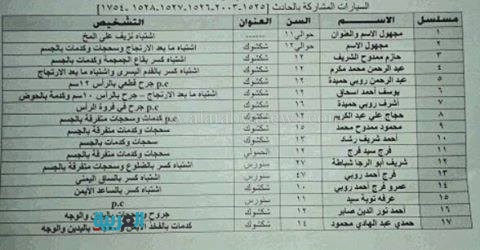 السيارات المشاركة بالحادث [١٥٢٥-٢٠٠٣-١٥٢٦-١٥٢٧-١٥٢٨-١٧٥٤]
مسلسل الاسم السن العنوان التشخيص
١ مجهول الاسم والعنوان حوالي ١١ اشتباه نزيف على المخ
٢ مجهول الاسم حوالي ١٢ شكشوك اشتباه ما بعد الارتجاج وسحجات وكدمات بالجسم
٣ حازم ممدوح الشريف ١٢ شكشوك اشتباه كسر بقاع الجمجمة وكدمات بالجسم
٤ عبد الرحمن محمد مكرم ١٢ شكشوك اشتباه كسر بالقدم اليسرى واشتباه ما بعد الارتجاج
٥ عبد الرحمن روبي حميدة ١٢ شكشوك جرح قطعي بالرأس ١٢سم
٦ يوسف أحمد اسحاق ١٢ شكشوك اشتباه ما بعد الارتجاج - جرح بالرأس ١٠سم وكدمة بالحوض
٧ أشرف روبي حميدة ١٦ شكشوك p.c جرح في فروة الرأس
٨ حجاج علي عبد الكريم ١٢ شكشوك p.c كدمات وسحجات متفرقة بالجسم
٩ محمود ممدوح محمد ١٥ شكشوك سحجات وكدمات متفرقة بالجسم
١٠ أحمد شريف رشاد ١٣ شكشوك سحجات وكدمات بالجسم
١١ فرج سيد فرج سحجات وكدمات متفرقة بالجسم
١٢ شريف أبو الرجا شباطة ٢٧ سنورس اشتباه كسر بالضلوع وسحجات متفرقة بالجسم
١٣ فرج أحمد روبي ٤٧ سنورس اشتباه كسر بالساق اليمنى
١٤ عمرو فرج أحمد روبي ١٠ شكشوك اشتباه كسر بالساعد الأيمن
١٥ عرفه توبة سيد سنورس p.c
١٦ أحمد نور الدين صابر ١٢ شكشوك جروح والوجه
١٧ حمدي عبد الهادي محمود ١٤ شكشوك كدمات بالفخذ باليدين والوجه
العربية